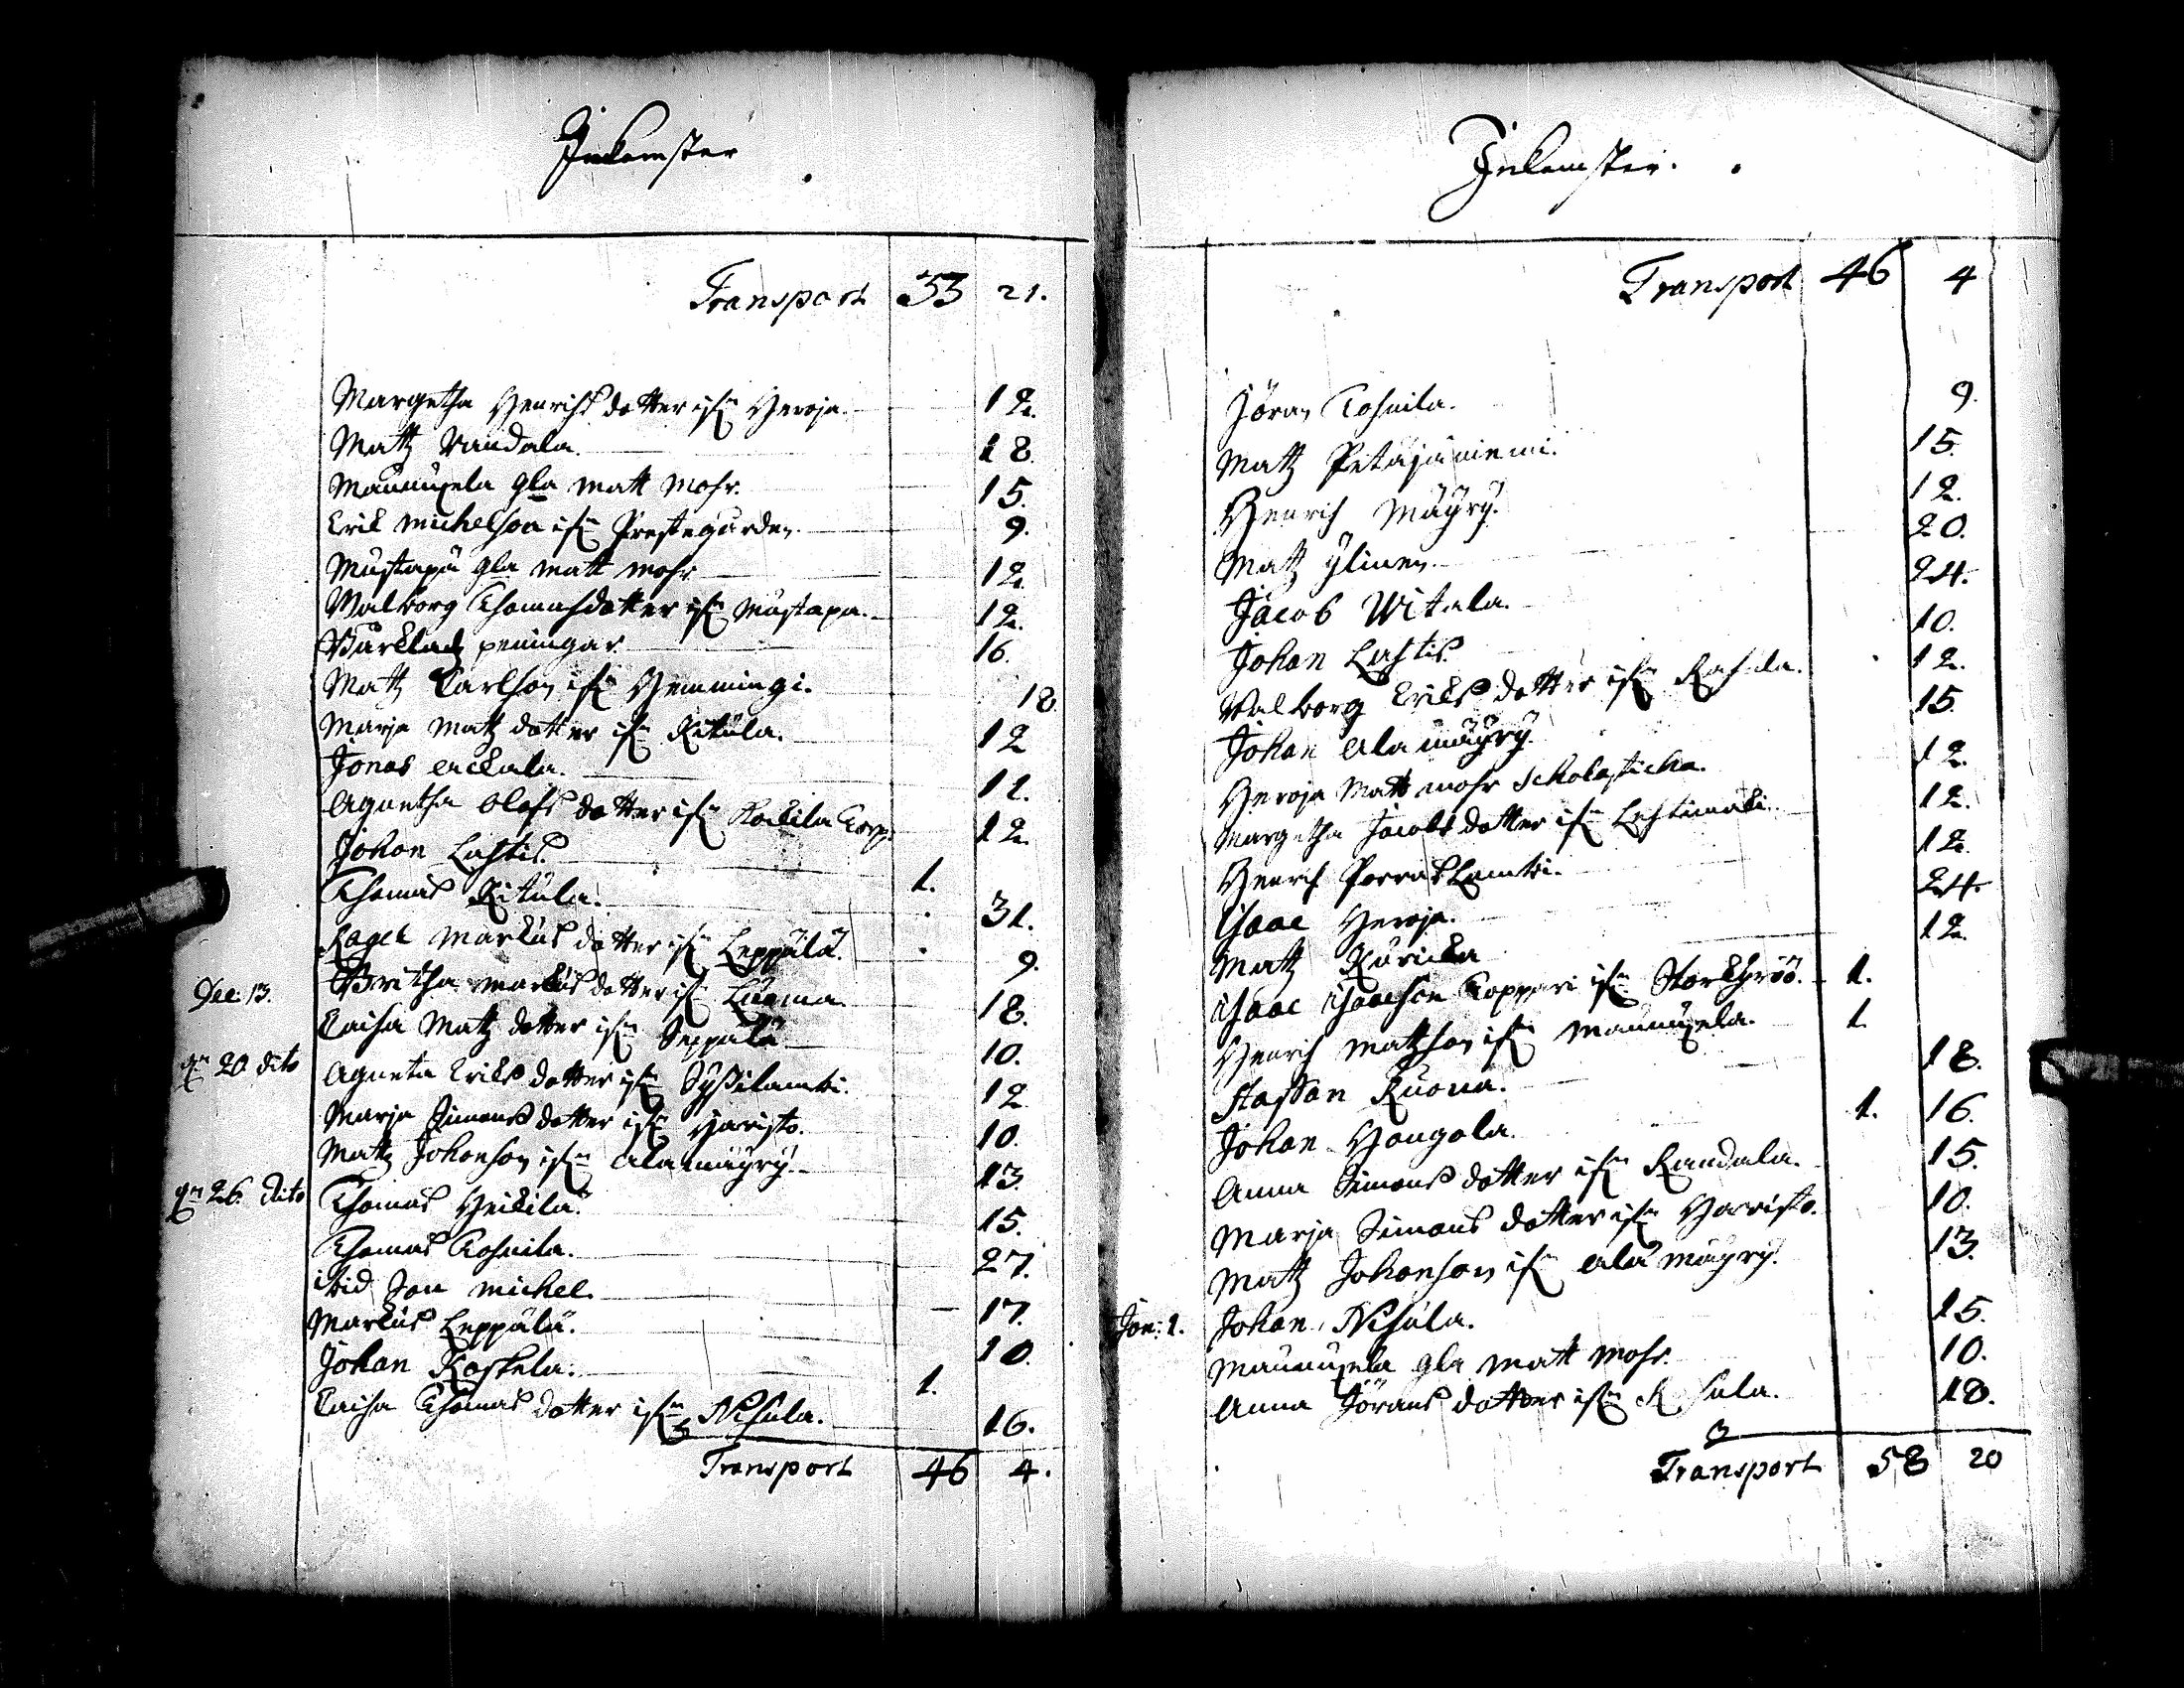 Inkomster
Transport 33 21.
Margetha Henrichsdotter ifrn Heroja. 12.
Matz Randala. 18.
Maunuxela gla matt mohr. 15.
Erik Michelson ifrn Prestegården. 9.
Mustapä gla matt mohr 12.
Walborg Thomasdotter ifrn Mustapä. 12.
Bårklädz peningar 16.
Matz Carlson ifrn Hemmingi. 18.
Marja Matz dotter ifrn Ritula. 12
Jonas Ackala. 11.
Agnetha Olofs dotter ifrn Kockila Torp. 12.
Johan Lahtis. 1.
Thomas Ritula. 31.
Ragel Markus dotter ifrn Leppälä. 9.
Dec: 13. Britha Markus dotter ifrn Luoma. 18.
Caisa Matz dotter ifrn Seppälä 10.
20 dito Agneta Eriks dotter ifrn Syßilambi. 12
Marja Simons dotter ifrn Harristo. 10.
Matz Johanson ifrn Alamäyry. 13.
26 dito Thomas Heikilä. 15.
Thomas Kohnila. 27.
ibid Son Michel. 17.
Markus Leppälä. 10.
Johan Koskela. 1.
Caisa Thomas dotter ifrn Nisula. 16.
Transport 46 4.
Inkomster.
Transport 46 4
Jöran Kohnila. 9.
Matz Petäjäniemi. 15.
Henrich Mäyry. 12.
Matz Ylinen. 20.
Jacob Witala. 24.
Johan Lahtis. 10.
Walborg Eriks dotter ifrn 12.
Johan Ala mäyry. 15
Heroja Matt mohr Scholasticha. 12.
Margetha Jacobs dotter ifrn Lehtimäki. 12.
Henrich Porraslambi. 12.
Isaac Heroja. 24.
Matz Kuricka 12.
Isaac Isaacson Koppari ifrn Storkyröö. 1.
Henrich Matzson ifrn Maunuxela. 1.
Staffan Kuona. 18.
Johan Hongola. 1. 16.
Anna Simons dotter ifrn Randala. 15.
Marja Simons dotter ifrn Harristo. 10.
Matz Johanson ifrn Ala mäyry. 13.
Jan: 1. Johan Nisula. 15.
Maunuxela gla matt mohr. 10.
Anna Jörans dotter ifrn 18.
Transport 58 20